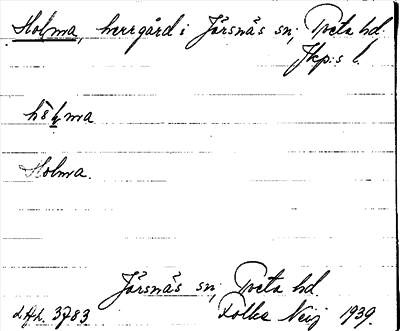 Holma, herrgård i Järsnäs sn, Tveta hd.
Jkp:s l.
Holma.
Järsnäs sn, Tveta hd.
3783 Folke 1939